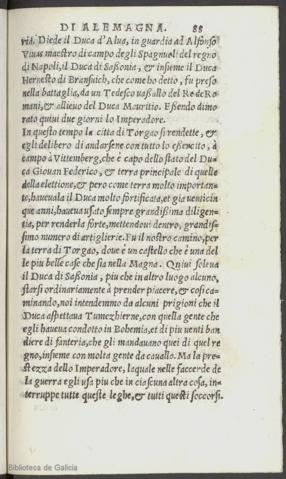 DI ALEMAGNA. 88
uia. Diede il Duca d'Alua, in guardia ad Alfonso
Viuas maestro di campo degli Spagnuoli del regno
di Napoli, il Duca di Saßonia, & insieme il Duca
Hernesto di Bransuich, che come ho detto, fu preso
nella battaglia, da un Tedesco uaßallo del Re de Ro
mani, & allieuo del Duca Mauritio. Eßendo dimo
rato quiui due giorni lo Imperadore.
In questo tempo la citta di Torgao si rendette, &
egli delibero di andarsene con tutto lo eßercito, à
campo à Vittemberg, che è capo dello stato del Du-
ca Giouan Federico, & terra principale di quelle
della elettione, & pero come terra molto importan-
te, haueuala il Duca molto fortificata, et gia uenticin
que anni, haueua usato sempre grandißima diligen-
tia, per renderla forte, mettendoui dentro, grandis-
simo numero di artiglierie. Fu il nostro camino, per
la terra di Torgao, doue è un castello che è una del
le piu belle case che sia nella Magna. Quiui soleua
il Duca di Saßonia, piu che in altro luogo alcuno,
starsi ordinariamente à prender piacere, & cosi ca-
minando, noi intendemmo da alcuni prigioni che il
Duca aspettaua Tumezhierne, con quella gente che
egli haueua condotto in Bohemia, et di piu uenti ban
diere di fanteria, che gli mandauano quei di quel re
gno, insieme con molta gente da cauallo. Ma la pre-
stezza dello Imperadore, laquale nelle faccende de
la guerra egli usa piu che in ciascuna altra cosa, in-
terruppe tutte queste leghe, & tutti questi soccorsi.
Biblioteca de Galicia